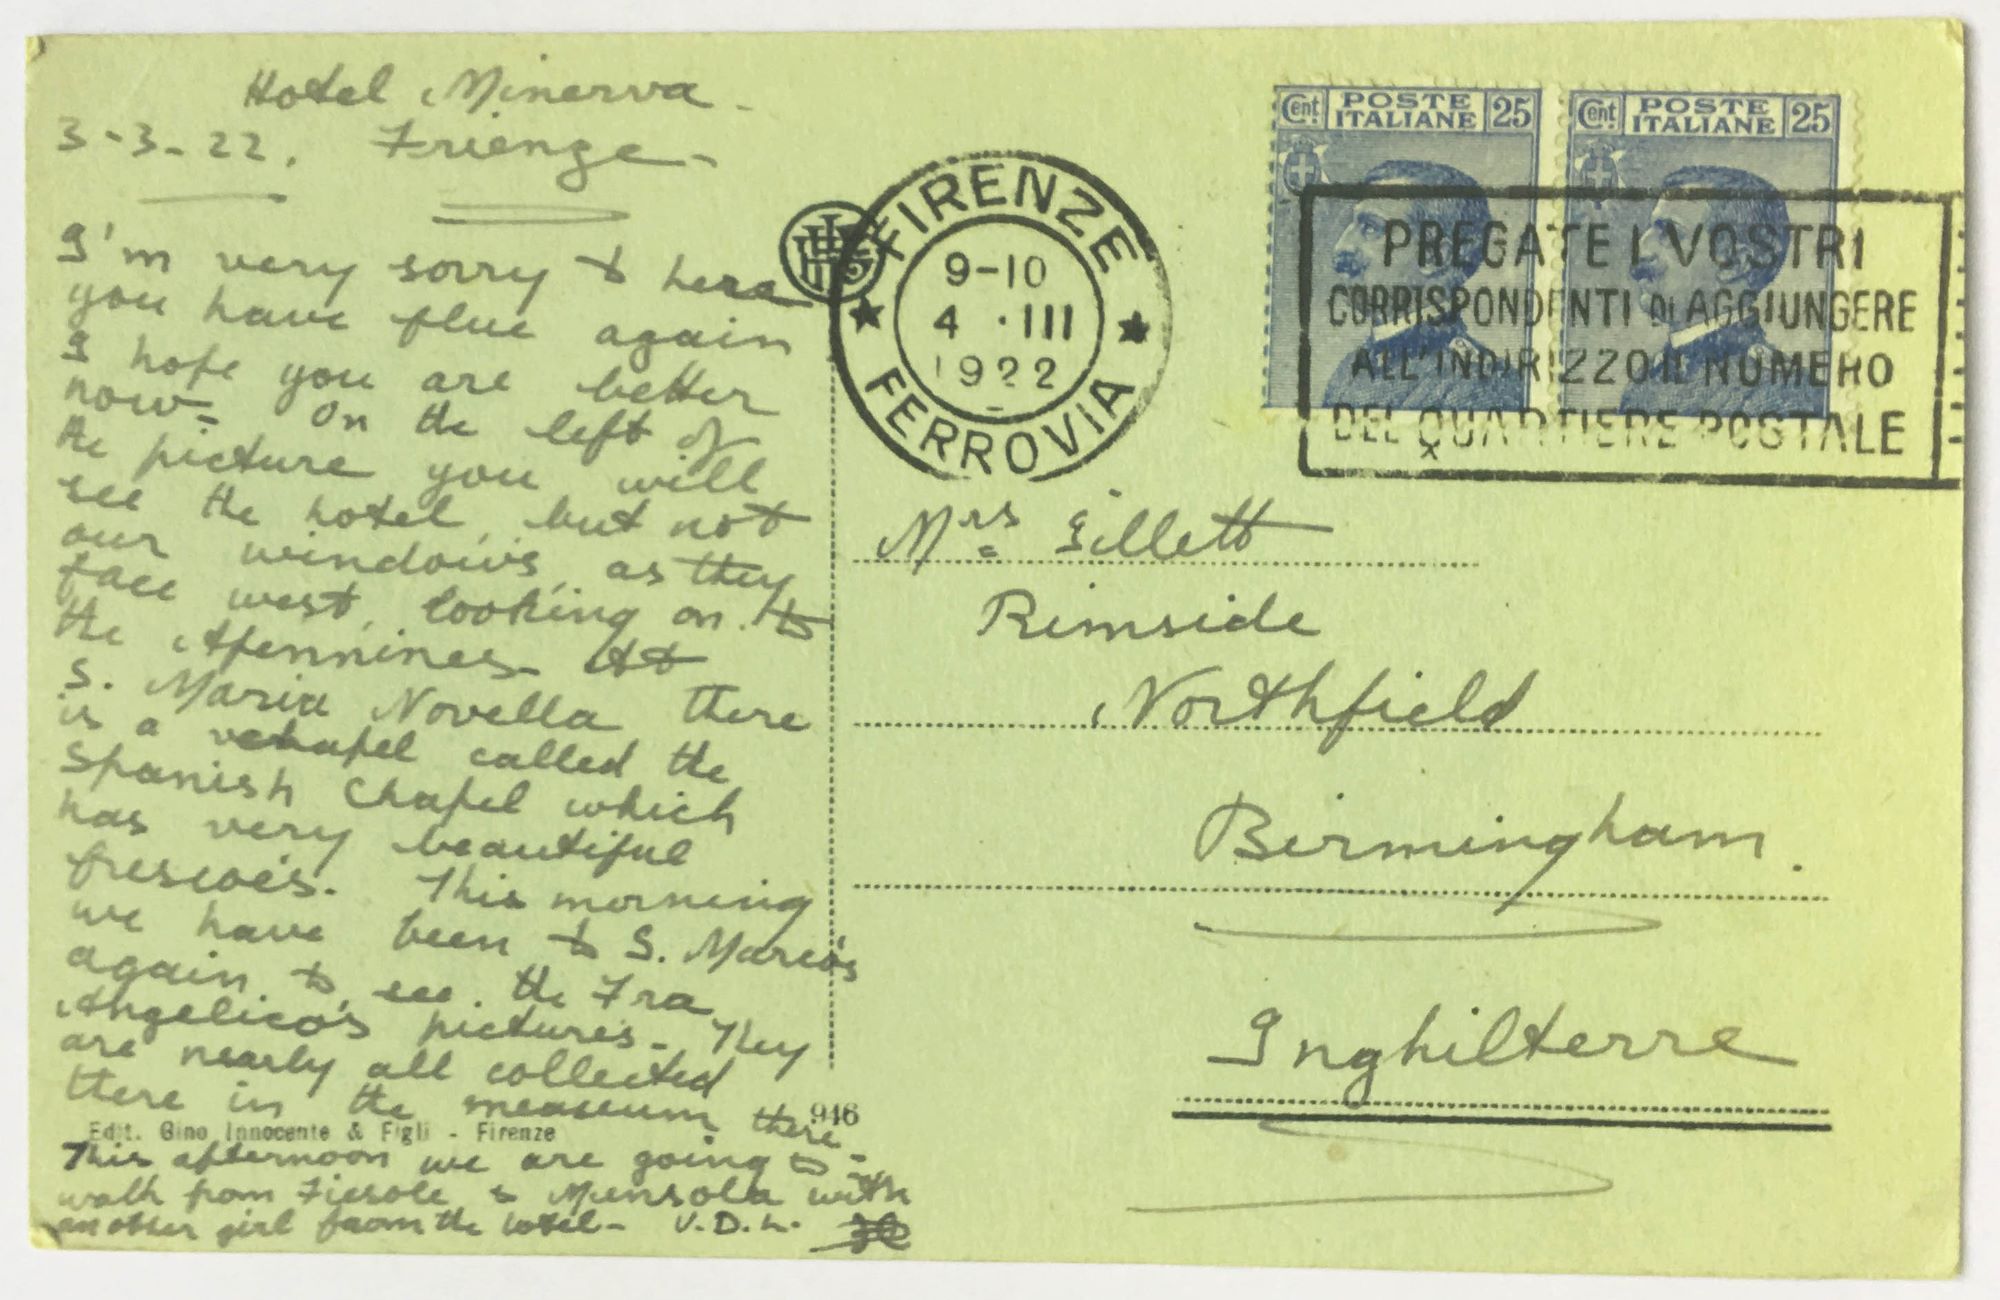 Hotel Minerva -
3-3-22. Frienze -
I'm very sorry to here
you have flue again
I hope you are better
now - On the left of
the picture you will
see the hotel, but not
our windows, as they
face west, looking on to
the Apennines - At
S. Maria Novella there
is a chapel called the
Spanish Chapel which
has very beautiful
frescoes. This morning
we have been to S. Marco's
again to see the Fra
Angelico's pictures - They
are nearly all collected
there in the there -
This afternoon we are going to -
walk from Fiesole to Mensola with
another girl from the hotel - V.D.L.
Edit. Gino Innocente & Figli - Firenze
946
FIRENZE
9-10
4 · III
1922
FERROVIA
Cent. POSTE ITALIANE 25
Cent. POSTE ITALIANE 25
PREGATE I VOSTRI
CORRISPONDENTI DI AGGIUNGERE
ALL'INDIRIZZO IL NUMERO
DEL QUARTIERE POSTALE
Mrs Gillett
Rimside
Northfield
Birmingham.
Inghilterre